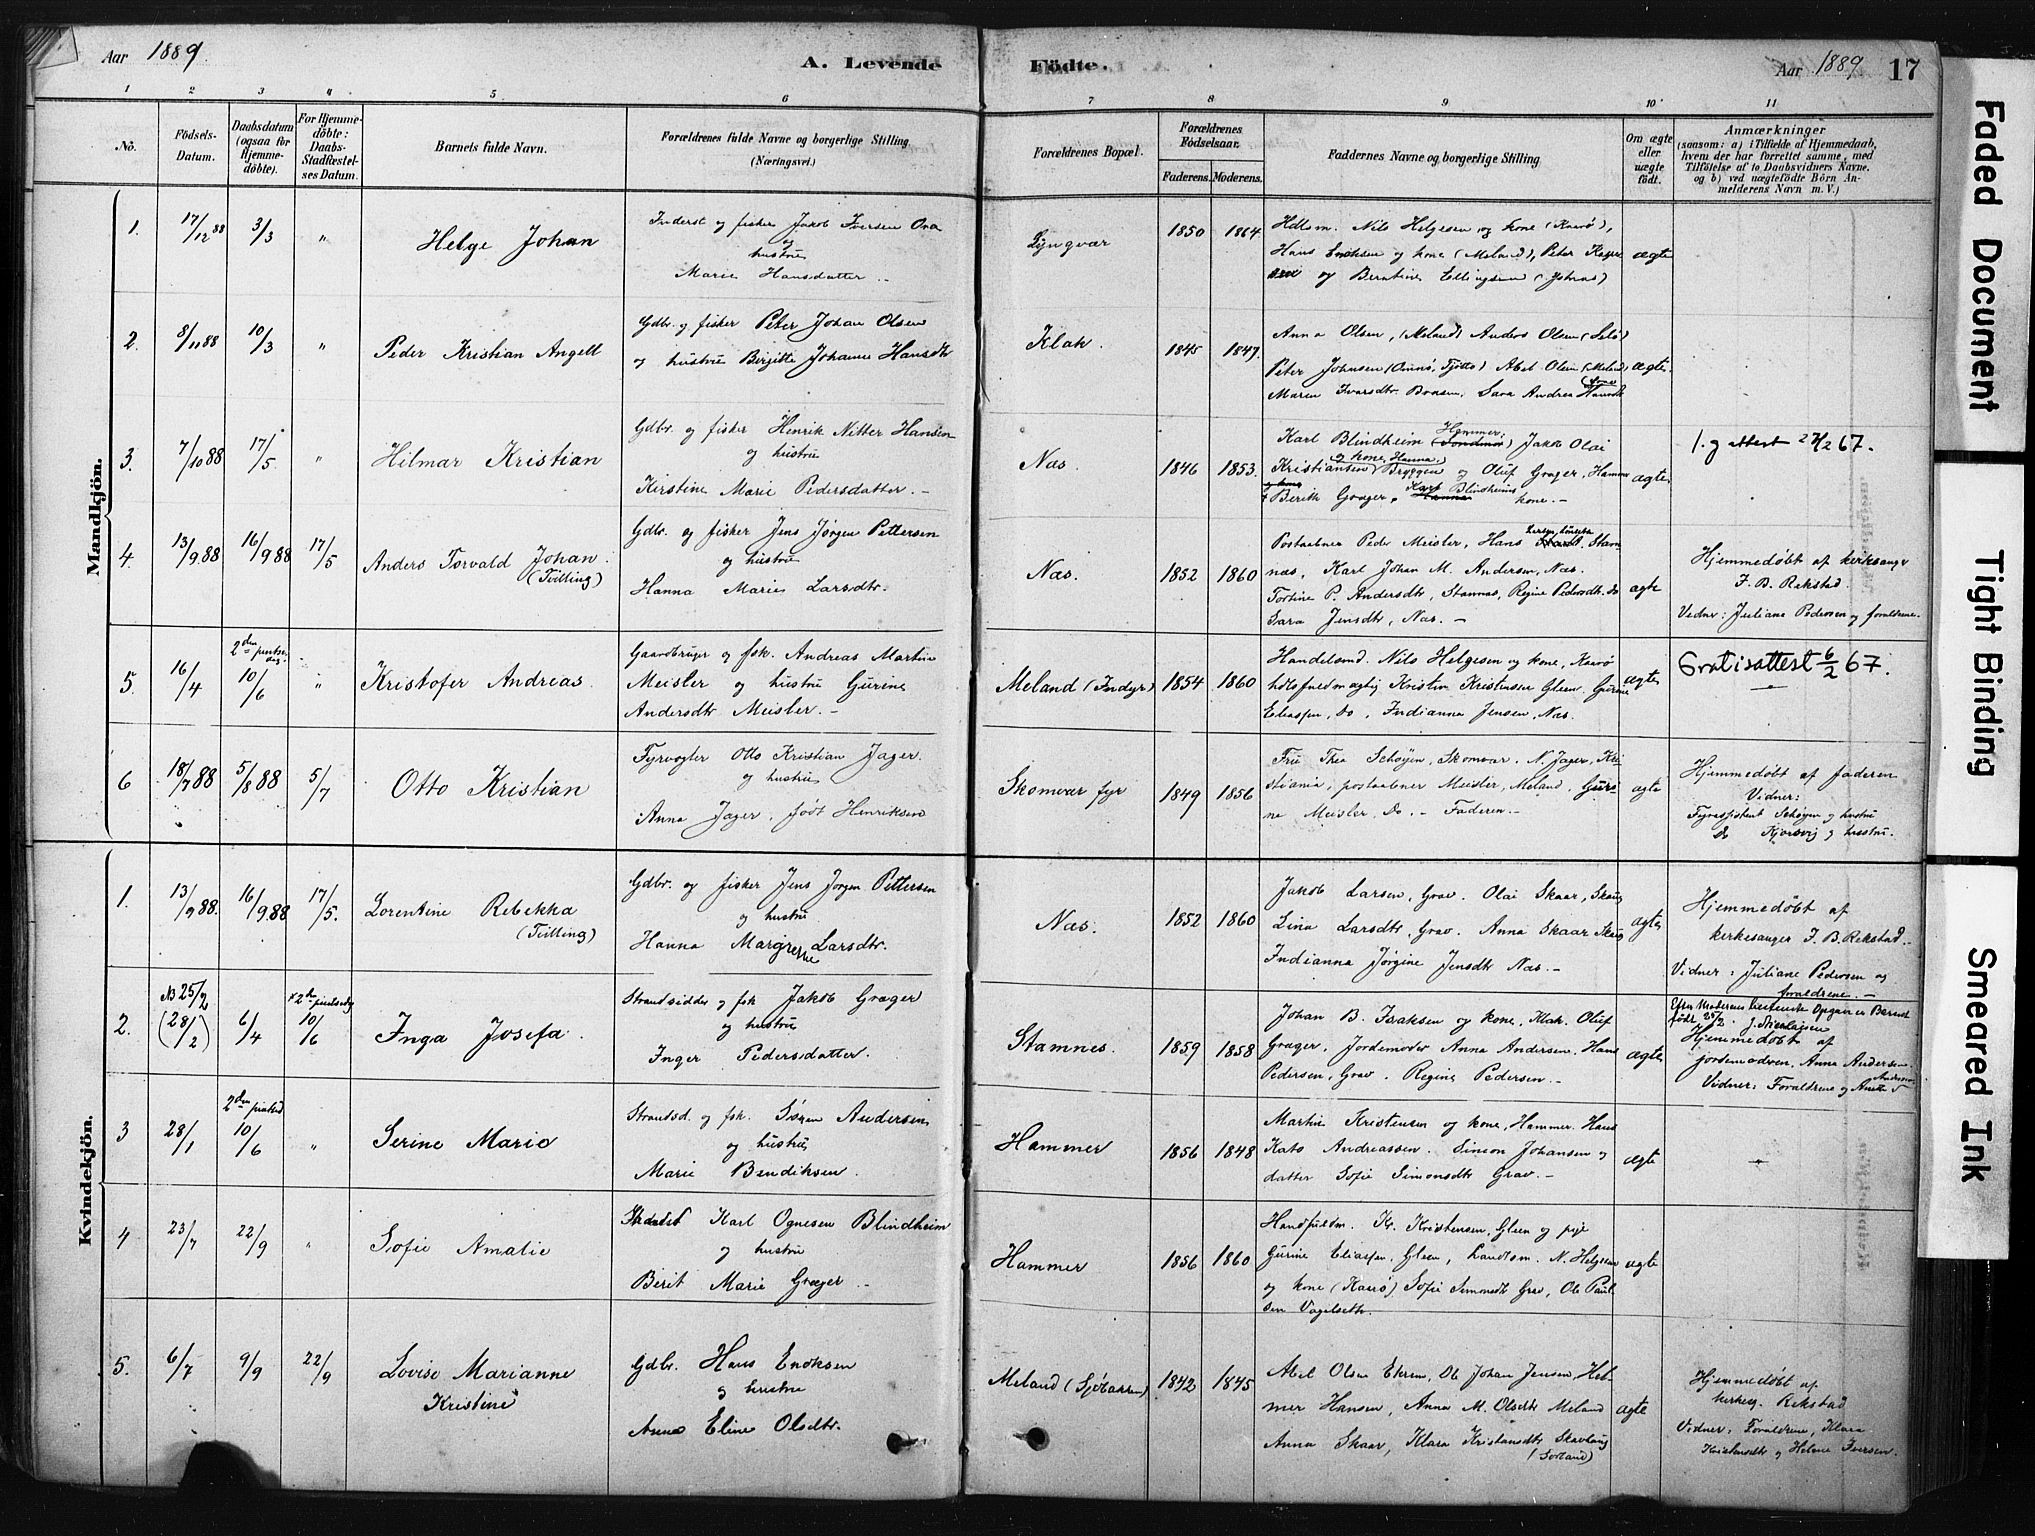 Aar 1889. A. Levende Födte. Aar 1889 17
1 2 3 4 5 6 7 8 9 10 11
No. Födsels-Datum. Daabsdatum (ogsaa for Hjemme-döbte). For Hjemme-döbte: Daabs-Stadfæstel-ses Datum. Barnets fulde Navn. Forældrenes fulde Navne og borgerlige Stilling (Næringsvei.) Forældrenes Bopæl. Forældrenes Födselsaar. Faderens. Moderens. Faddernes Navne og borgerlige Stilling Om ægte eller uægte födt. Anmærkninger (saasom: a) i Tilfælde af Hjemmedaab, hvem der har forrettet samme, med Tilföielse af to Daabsvidners Navne. og b) ved uægtefödte Börn An-melderens Navn m. V.)
Mandkjön.
1. 17/12 88 3/3 " Helge Johan
Inderst og fisker Jakob Iversen
og
hustru
Marie Hansdatter
Lyngvær 1850 1864
Hdlsm. Nils Helgesen og kone (Karø),
Hans Enoksen og kone (Meland), Peter
og Berntine Ellingsen
ægte
2. 8/11 88 10/3 " Peder Kristian Angell
Gdbr. og fisker Peter Johan Olsen
og hustru Birgitte Johanna Hansdtr
Klak. 1845 1847.
Anna Olsen, (Meland) Anders Olsen
Peter Johnsen Abel Olsen (Meland)
Maren Ivarsdtr. Sara Andrea Hansdtr
ægte
3. 7/10 88 17/5 " Hilmar Kristian
Gdbr. og fisker Henrik Nitter Hansen
og hustru
Kirstine Marie Pedersdatter. –
Næs. 1846 1853.
Karl Blindheim Hammer, Jakob Olai
Kristiansen og kone, Hanna Bryggen og Oluf Græger, Hammer
Berith Græger, Karl Blindheims kone. –
ægte
1. g attest 27/2 67.
4. 13/9 88 16/9 88 17/5 Anders Torvald Johan
(Tvilling)
Gdbr. og fisker Jens Jørgen Pettersen
og hustru
Hanna Marie Larsdtr.
Næs. 1852 1860
Postaabner Peder Meisler, Hans Stam-
næs, Karl Johan M. Andersen, Næs.
Tortine P. Andersdtr, Stamnæs, Regine Pedersdtr. do
Sara Jensdtr, Næs. –
ægte
Hjemmedøbt af kirkesanger
J. B. Rekstad.
Vidner: Juliane Pedersen og forældrene.
5. 16/4 2den pintsedag. 10/6 " Kristofer Andreas
Gaardbruger og fisk. Andreas Martin
Meisler og hustru Gurine
Andersdtr Meisler. –
Meland (Indyr) 1854 1860
Handelsmd. Nils Helgesen og kone, Karø
Kristen Kristensen Gleen. Gurine
Eliassen, do, Indianna Jensen, Næs.
ægte
Gratisattest 6/2 67.
6 18/7 88 5/8 88 5/7 Otto Kristian
Fyrvogter Otto Kristian Jager.
og hustru
Anna Jager, født Henriksen
Skomvær fyr 1849 1856
Fru Thea Schøyen, Skomvær. N. Jager, Kri-
stiania, postaabner Meisler, Meland, Guri-
ne Meisler, do. – Faderen. –
ægte
Hjemmedøbt af faderen
Vidner:
Fyrassistent Schøyen og hustru
do og hustru.
Kvindekjön.
1. 13/9 88. 16/9 88 17/5. Lorentine Rebekka
(Tvilling)
Gdbr. og fisker Jens Jørgen Pettersen
og hustru
Hanna Margrethe Larsdtr.
Næs. 1852 1860
Jakob Larsen, Grav. Olai Skaar,
Lina Larsdtr, Grav. Anna Skaar
Indianna Jørgine Jensdtr Næs. –
ægte
Hjemmedøbt af
kirkesanger J. B. Rekstad. –
Vidner: Juliane Pedersen og
forældrene. –
2. NB 25/2 (28/2) 6/4 2den pintsedag 10/6 Inga Josefa.
Strandsidder og fisk Jakob Græger
og hustru
Inger Pedersdatter.
Stamnes. 1859 1858
Johan B. Isaksen og kone, Klak. Oluf
Græger. Jordemoder Anna Andersen. Hans
Pedersen, Grav. Regine Pedersen. –
ægte
Efter Moderens Opgave er Barnet
født 25/2. J. Nicolaisen
Hjemmedøbt af
jordemoderen, Anna Andersen.
Vidner: Forældrene og Andersen
3 28/1 2den pintsed 10/6 " Serine Marie
Strandsd. og fisk. Søren Andersen
og hustru
Marie Bendiksen.
Hammer 1856 1848
Martin Kristensen og kone, Hammer. Hans
Kato Andreassen. Simon Johansen og
datter Sofie Simonsdtr Grav. –
ægte
–
4 23/7 22/9 " Sofie Amalie
Karl Ognesen Blindheim
og hustru
Berit Marie Græger. –
Hammer 1856 1860
Kr. Kristensen, Gleen og pige
Gurine Eliassen, Gleen, Landhsm. N. Helgesen
og kone (Karø) Sofie Simonsdtr Grav, Ole Paul-
sen
ægte
5. 6/7 9/9 22/9 Lovise Marianne
Kristine
Gdbr. Hans Enoksen
og hustru
Anne Eline Olsdtr.
Meland 1842 1845
Abel Olsen Ole Johan Jensen, Hel-
mer Hansen, Anna M. Olsdtr Meland
Anna Skaar, Klara Kristansdtr
(Sørland)
ægte
Hjemmedøbt af
kirkesg. Rekstad
Vidner: Forældrene, Klara
Kristansdtr og Helene Iversen.
Faded Document
Tight Binding
Smeared Ink